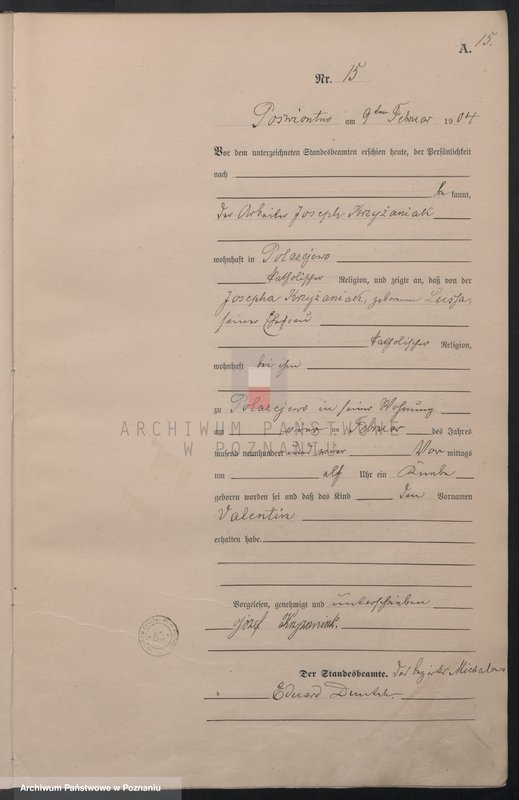 A. 15.
Nr. 15
am 9ten Februar 1904
Vor dem unterzeichneten Standesbeamten erschien heute, der Persönlichkeit
nach
bekannt,
der Arbeiter Joseph Krzyżaniak
wohnhaft in Polazejewo
katholischer Religion, und zeigte an, daß von der
Josepha Krzyżaniak, geborenen
seiner Ehefrau
katholischer Religion,
wohnhaft bei ihm
zu Polazejewo in seiner Wohnung
am Februar des Jahres
tausend neunhundert und vier Vor mittags
um elf Uhr ein Knabe
geboren worden sei und daß das Kind den Vornamen
Valentin
erhalten habe.
Vorgelesen, genehmigt und unterschrieben
Józef Krzyżaniak.
Der Standesbeamte.
Eduard
ARCHIWUM PAŃSTWOWE
W POZNANIU
Archiwum Państwowe w Poznaniu